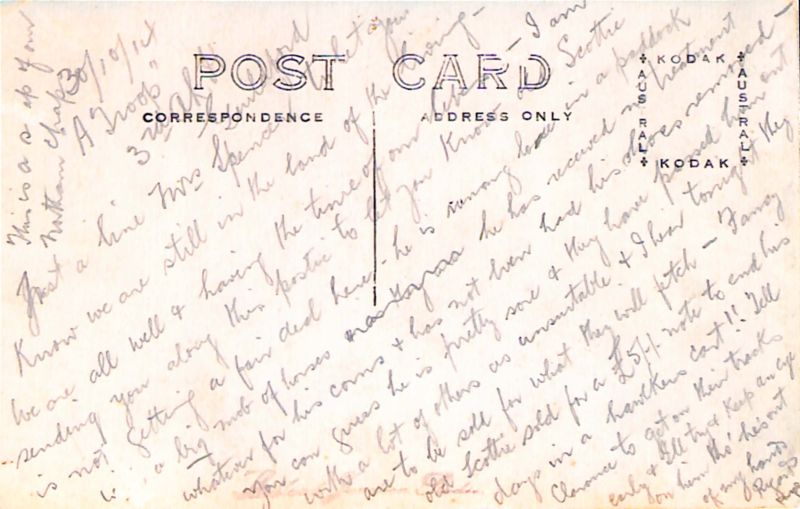 POST CARD
CORRESPONDENCE
ADDRESS ONLY
KODAK
AUSTRALIA
AUSTRAL
KODAK
This is a s up of your
Northam Chaps
30/10/14
"A Troop"
3rd
Guildford
Mrs Spencer let you
Just a line
know we are still in the land of the living -
We are all well & having the time of our life - I am
sending you along this postie to let you know Scottie
is not getting a fair deal here - he is running loose in a paddock
a big mob of horses he has received no treatment
whatever for his corns & has not been had his shoes removed -
You can guess he is pretty sore & they have passed him out
with a lot of others as unsuitable & I hear tonight they
are to be sold for what they will fetch - Fancy
old Scottie sold for a £5 note to end his
days in a hawkers cart!! Tell
Clarence to get on their tracks
early & I'll try & keep an eye
on him tho' he's out
of my hands
Regards